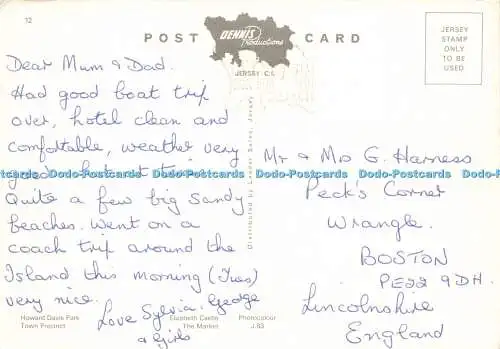 12
POST CARD
DENNIS
Productions
JERSEY C.I.
JERSEY
STAMP
ONLY
TO BE
USED
Dear Mum & Dad.
Had good boat trip
over, hotel clean and
comfortable, weather very
Quite a few big sandy
beaches. Went on a
coach trip around the
Island this morning (Tues)
very nice.
Love Sylvia, George
& Girls
Distributed by Leader Sales, Jersey
Mr & Mrs G. Harness
Peck's Corner
Wrangle.
BOSTON
PE22 9DH.
Lincolnshire
England
Dodo-Postcards Dodo-Postcards Dodo-Postcards Dodo-Postcards Dodo-Postcards
Howard Davis Park
Town Precinct
Elizabeth Castle
The Market
Photocolour
J.83